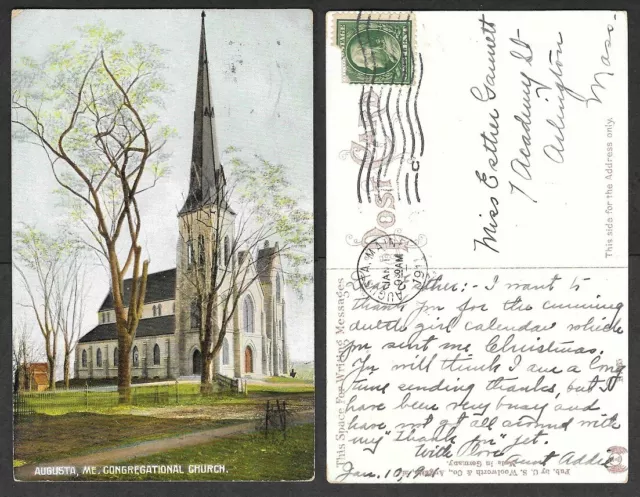 AUGUSTA, ME. CONGREGATIONAL CHURCH.
POST CARD
This side for the Address only.
This Space For Writing Messages
AUGUSTA, MAINE
JAN
AM
Miss Esther Gannett
7 Academy St
Arlington
Mass.
Dear Esther:- I want to
thank you for the cunning
dutch girl calendar which
you sent me Christmas.
You will think I am a long
time sending thanks, but I
have been very busy and
have not got all around with
my "Thank you" yet.
With love Aunt Addie
Jan. 10, 19
Pub. by U. S. Woolworth & Co.,
Made in Germany.